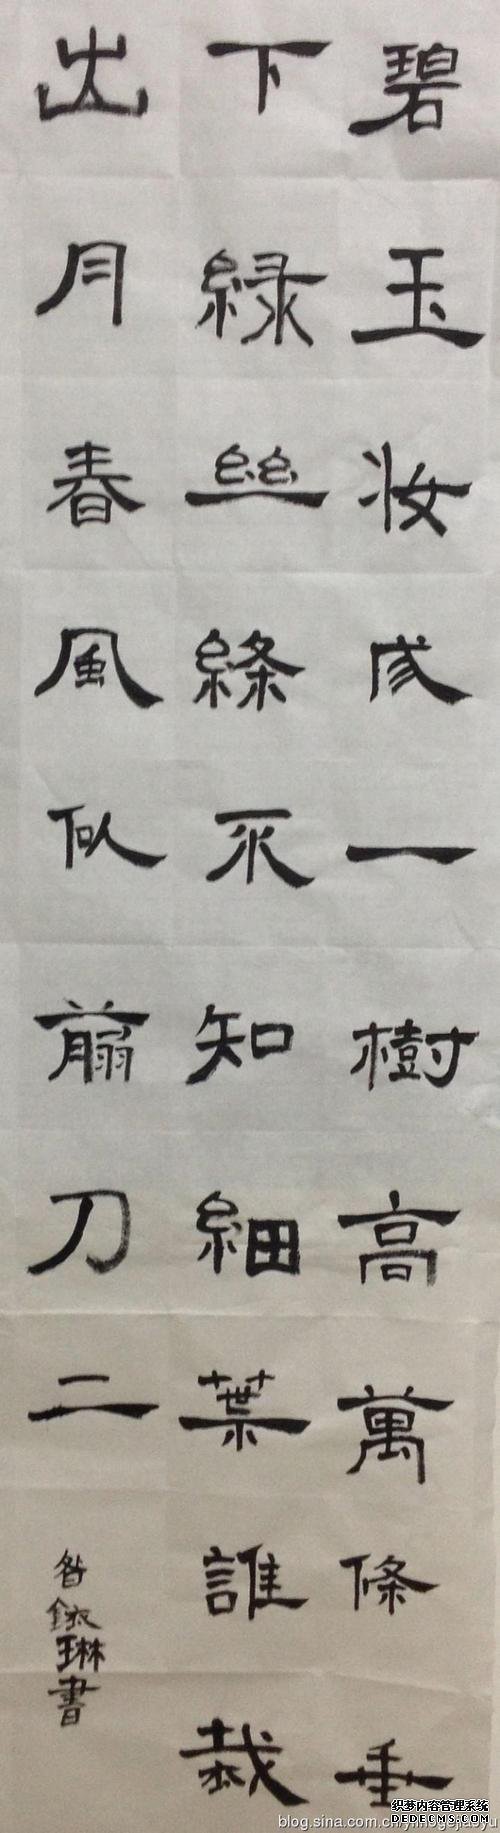 碧玉妆成一樹高萬條垂
下緑丝絛不知細葉誰裁
出月春風似翦刀二
昝銥琳書
织梦内容管理系统
DEDECMS.COM
blog.sina.com.cn